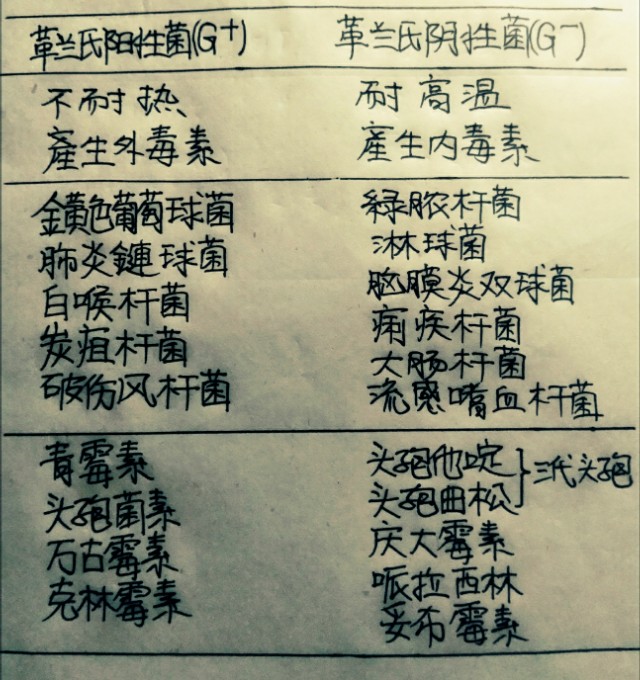 革兰氏阳性菌(G+) 革兰氏阴性菌(G-)
不耐热 耐高温
產生外毒素 產生内毒素
金黄色葡萄球菌 緑脓杆菌
肺炎鏈球菌 淋球菌
白喉杆菌 脑膜炎双球菌
炭疽杆菌 痢疾杆菌
破伤风杆菌 大肠杆菌
流感嗜血杆菌
青霉素 头孢他啶
头孢菌素 头孢曲松 三代头孢
万古霉素 庆大霉素
克林霉素 哌拉西林
妥布霉素